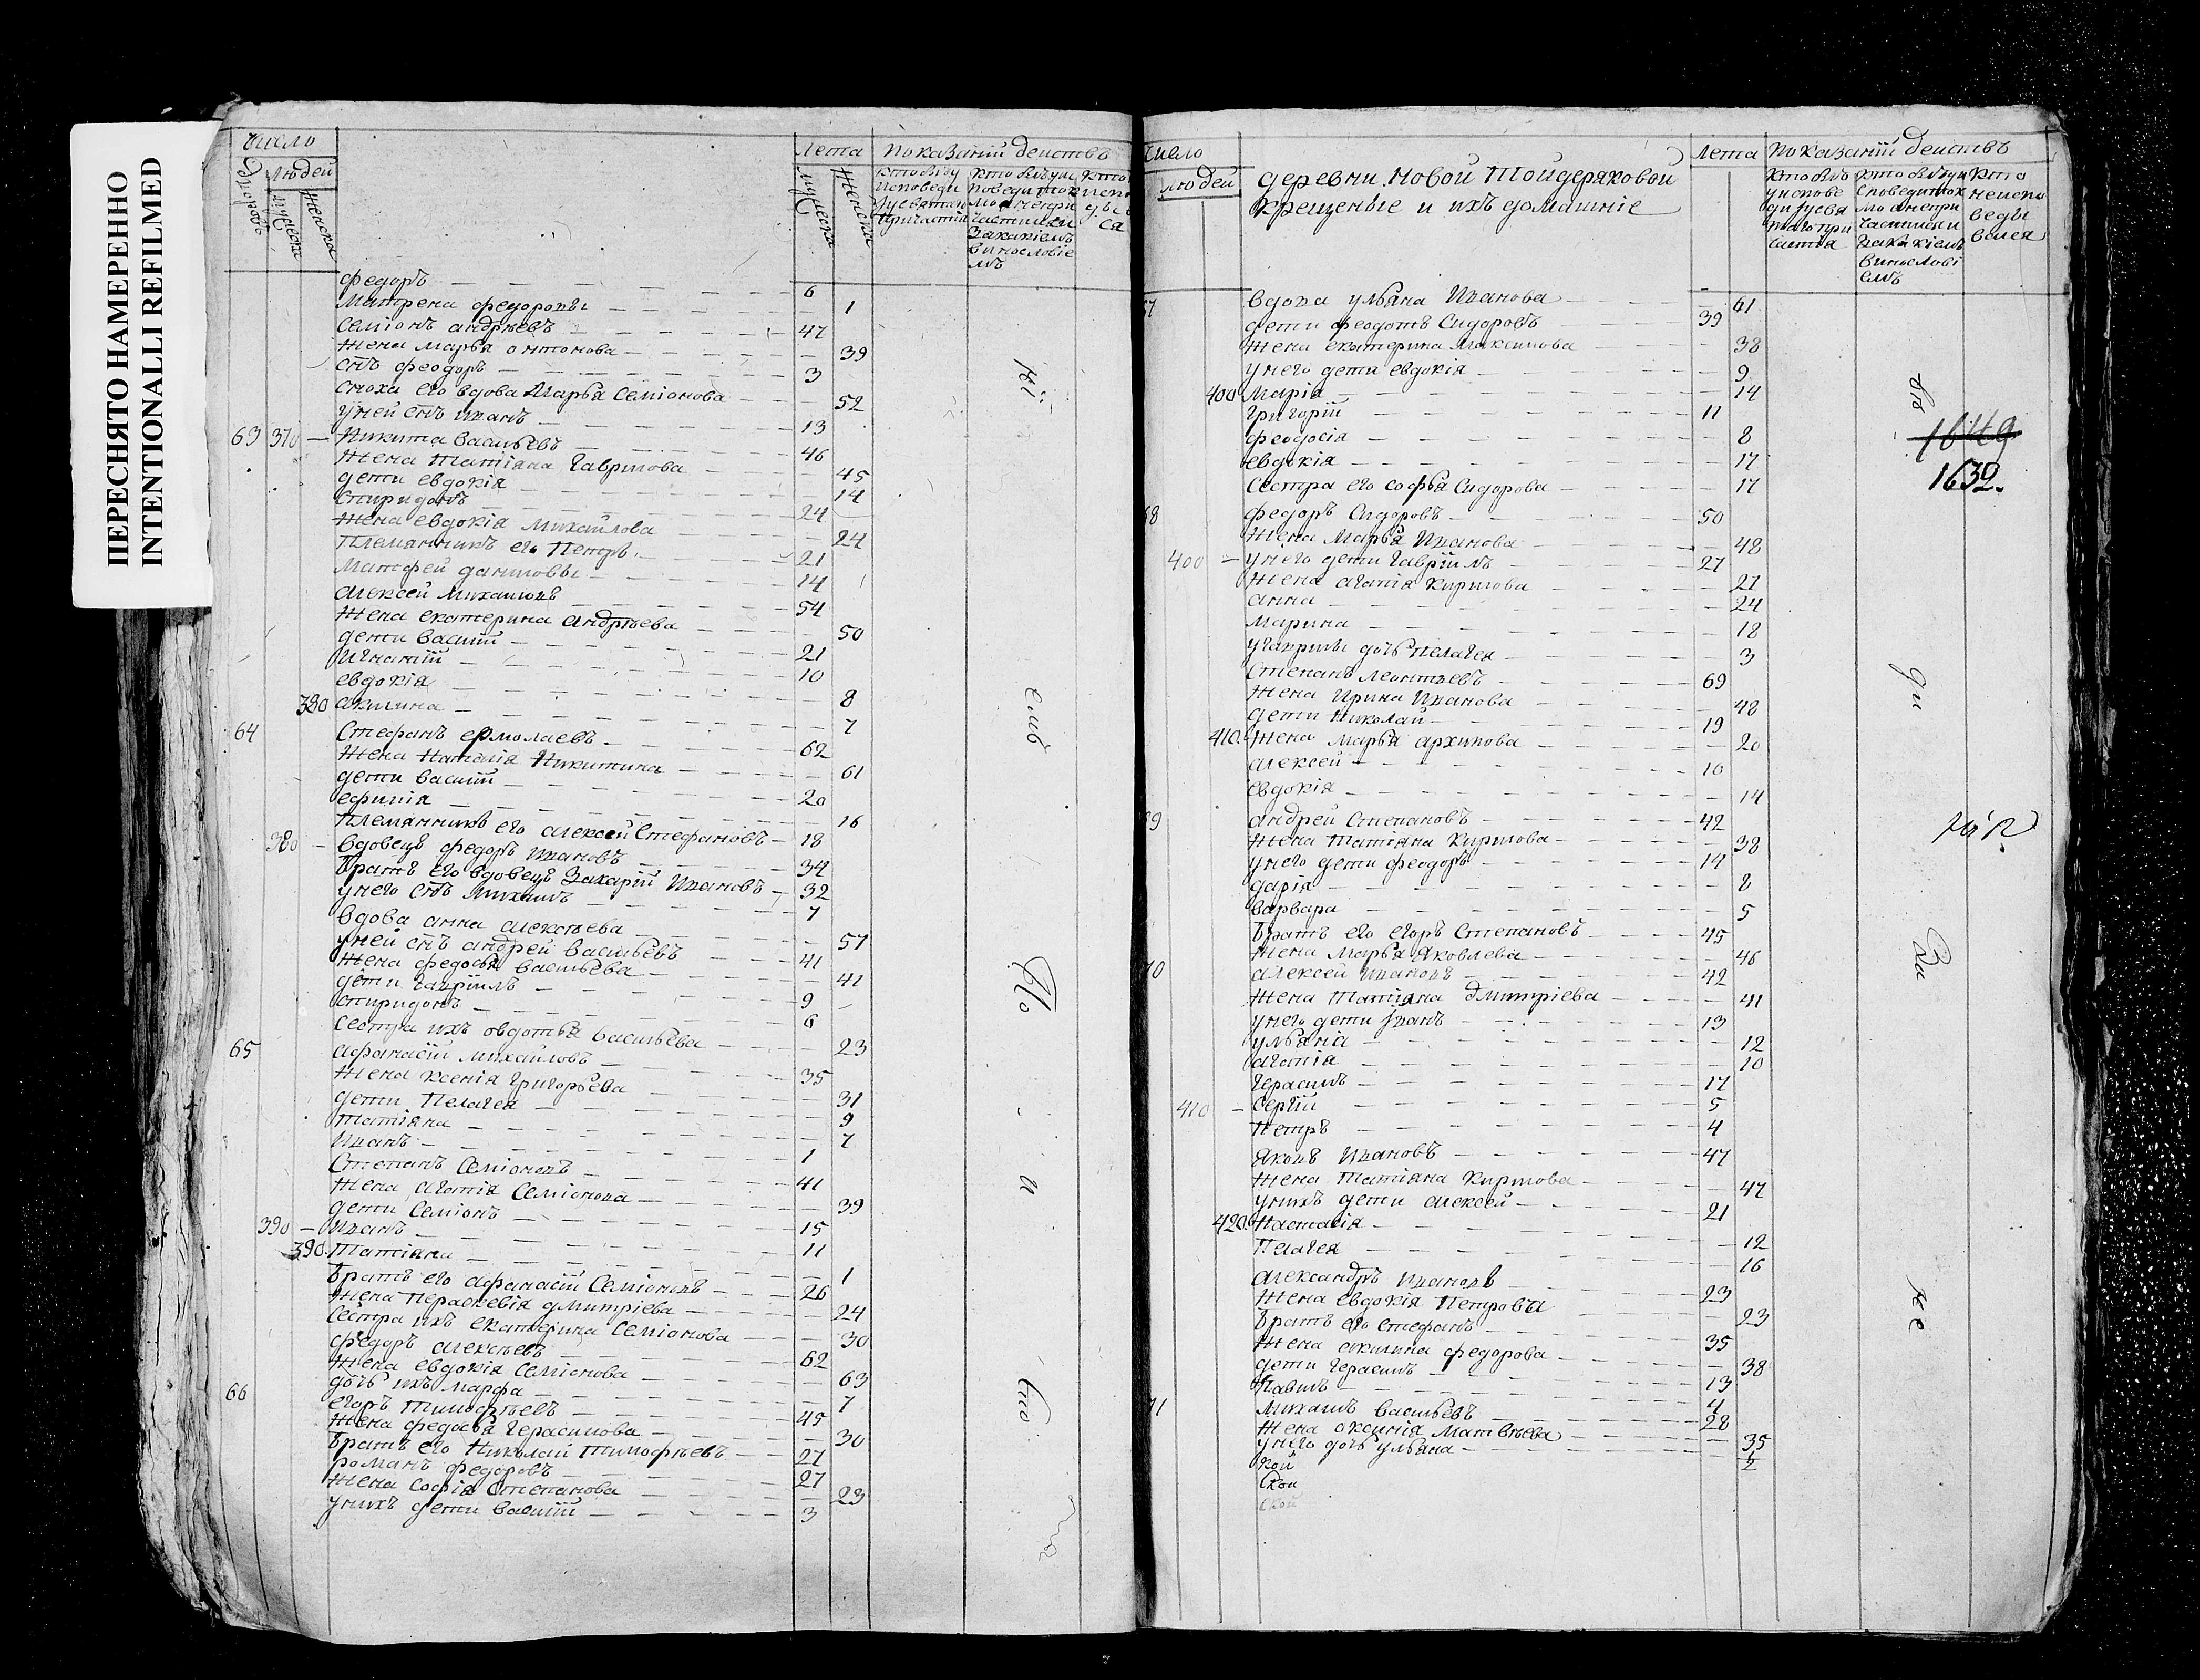 ПЕРЕСНЯТО НАМЕРЕННО
INTENTIONALLI REFILMED
число
людей
дворовъ
мужеска
женска
Лета
мужеска
женска
показаніи действъ
федоръ 6
Матрена федоровы 1
Семіонъ андрѣевъ 47
жена Марья онтонова 39
снъ феодоръ 3
сноха его вдова Марья Семіонова 52
у ней снъ иванъ 13
63 370 Никита васильевъ 46
жена татіяна гаврилова 45
дети евдокія 14
спиридонъ 24
жена евдокія михайлова 24
племянникъ его Петръ 21
матфей даниловы 14
алексей михаиловъ 54
жена екатерина андрѣева 50
дети василій 21
Игнатій 10
евдокія 8
380 акилина 7
64 Стефанъ ермолаевъ 62
жена Наталія Никитина 61
дети василій 20
ефимія 16
племянникъ его алексей Стефановъ 18
380 вдовецъ федоръ ивановъ 34
братъ его вдовецъ Захарій Ивановъ 32
у него снъ михаилъ 7
вдова анна алексѣева 57
у ней снъ андрей васильевъ 41
жена федосья васильева 41
дети гавріилъ 9
спиридонъ 6
сестра ихъ овдотья васильева 23
65 афанасій михайловъ 35
жена ксенія григорьева 31
дети Пелагея 9
татіяна 7
иванъ 1
Степанъ Семіоновъ 41
жена агафія Семіонова 39
дети Семіонъ 15
390 иванъ 11
390 татіяна 1
братъ его афанасій Семіоновъ 26
жена параскевія дмитріева 24
сестра ихъ екатерина Семіонова 30
федоръ алексѣевъ 62
жена евдокія Семіонова 63
дочь ихъ марфа 7
66 егоръ тимофѣевъ 45
жена федосья герасимова 30
братъ его Николай тимофѣевъ 27
романъ федоровъ 27
жена софія Степанова 23
у нихъ дети василій 3
число
людей
деревни новой тойдеряковой
крещеные и ихъ домашніе
Лета
показаніи действъ
вдова ульяна Иванова 61
дети феодотъ Сидоровъ 39
жена екатерина Максимова 38
у него дети евдокія 9
400 Марія 14
григорій 11
феодосія 8
евдокія 17
сестра его софья Сидорова 17
федоръ Сидоровъ 50
жена Марья Иванова 48
400 у него дети гавріилъ 27
жена агафія кирилова 27
анна 24
марина 18
у гаврилы дочь пелагея 3
Степанъ леонтьевъ 69
жена Ирина Иванова 48
дети николай 19
410 жена марья архипова 20
алексей 10
евдокія 14
андрей Степановъ 42
жена татіяна кирилова 38
у него дети феодоръ 14
дарія 8
варвара 5
братъ его егоръ Степановъ 45
жена марья яковлева 46
алексей ивановъ 42
жена татіяна дмитріева 41
у него дети иванъ 13
ульяна 12
агафія 10
герасимъ 17
410 Сергій 5
Петръ 4
яковъ Ивановъ 47
жена татіяна кирилова 47
у нихъ дети алексей 21
420 настасія 12
пелагея 16
александръ ивановъ 23
жена евдокія Петрова 23
братъ его стефанъ 35
жена акилина федорова 38
дети герасимъ 13
Павилъ 4
михаилъ васильевъ 28
жена аксинія матвѣева 35
у него дочь ульяна
кой
ской
ской
1632.